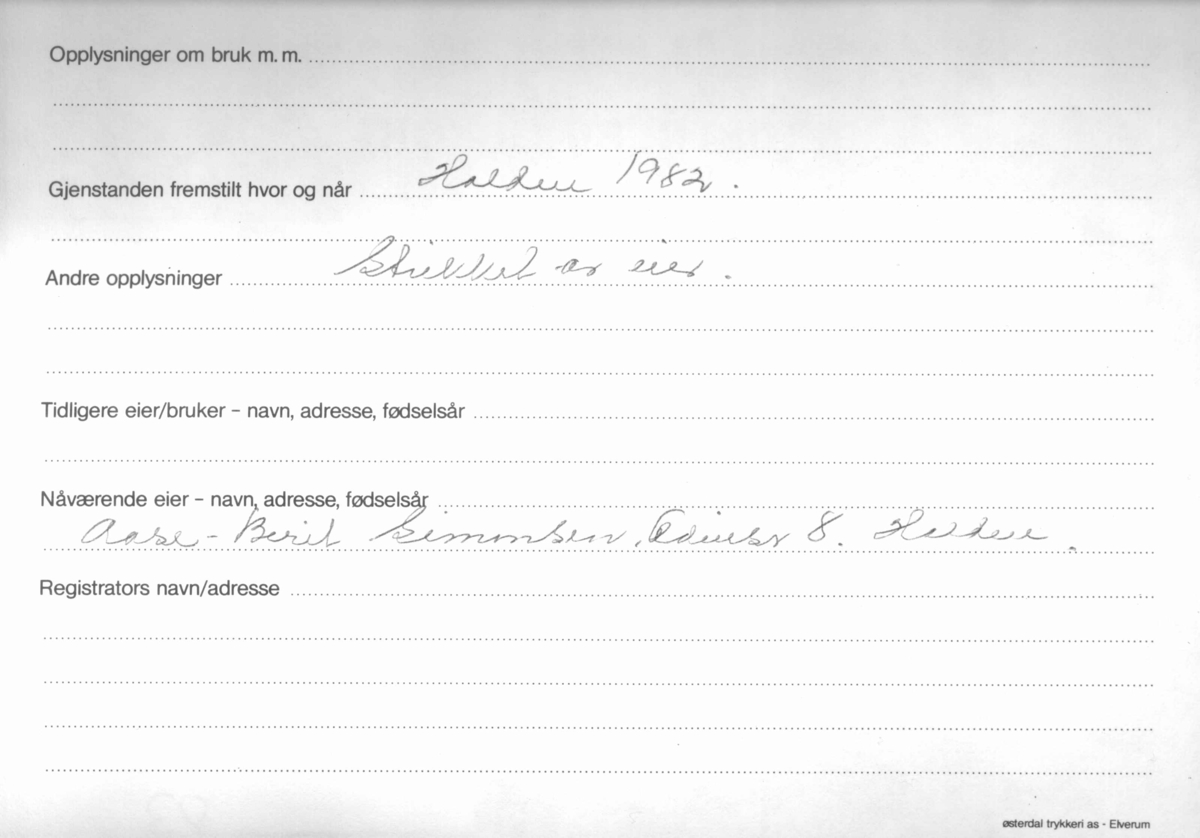 Opplysninger om bruk m.m.
Gjenstanden fremstilt hvor og når Halden 1982.
Andre opplysninger Strikket av eier.
Tidligere eier/bruker – navn, adresse, fødselsår
Nåværende eier – navn, adresse, fødselsår
Aase-Berit Simonsen, 8. Halden.
Registrators navn/adresse
østerdal trykkeri as - Elverum